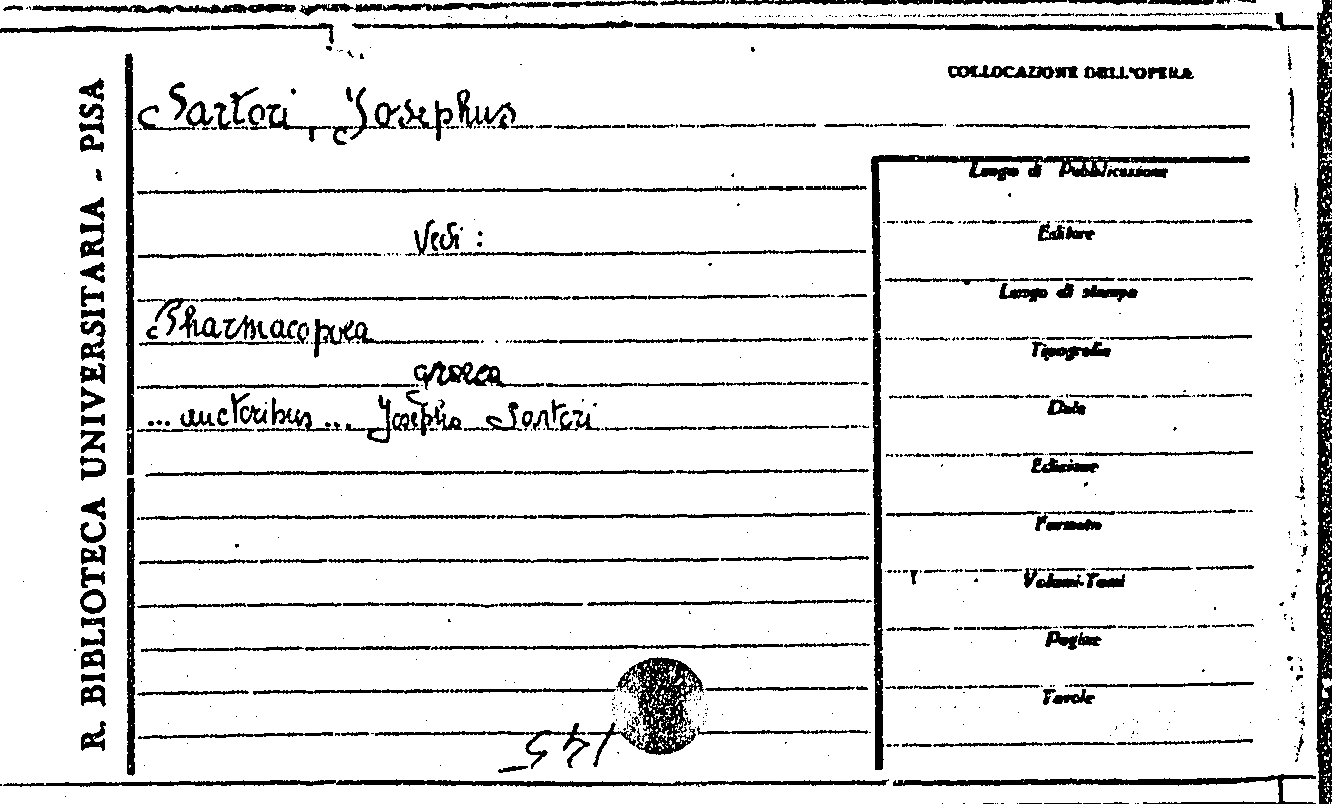 R. BIBLIOTECA UNIVERSITARIA - PISA
COLLOCAZIONE DELL'OPERA
Sartori, Josephus
Vedi :
Pharmacopoea
graeca
... auctoribus ... Josepho Sartori
Luogo di Pubblicazione
Editore
Luogo di stampa
Tipografia
Data
Edizione
Formato
Volumi-Tomi
Pagine
Tavole